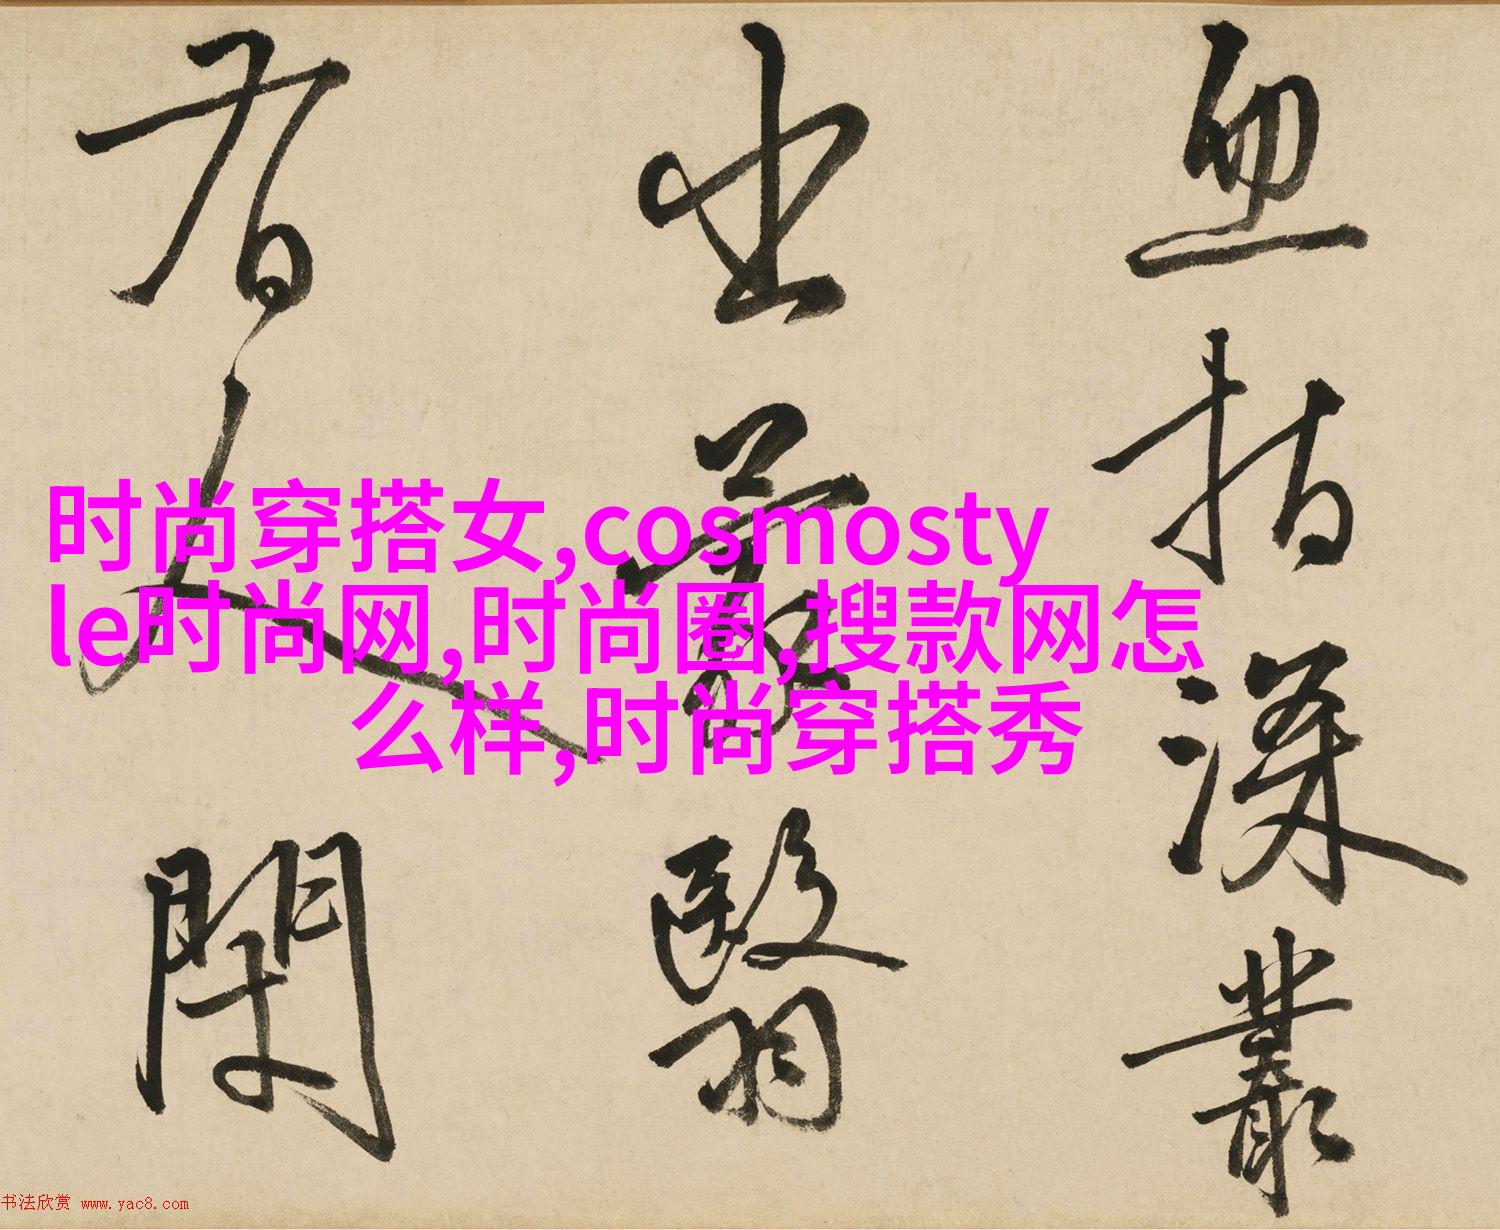 血指深叢
出蒙翳
人
时尚穿搭女,cosmosty
le时尚网,时尚圈,搜款网怎
么样,时尚穿搭秀
书法欣赏 www.yac8.com